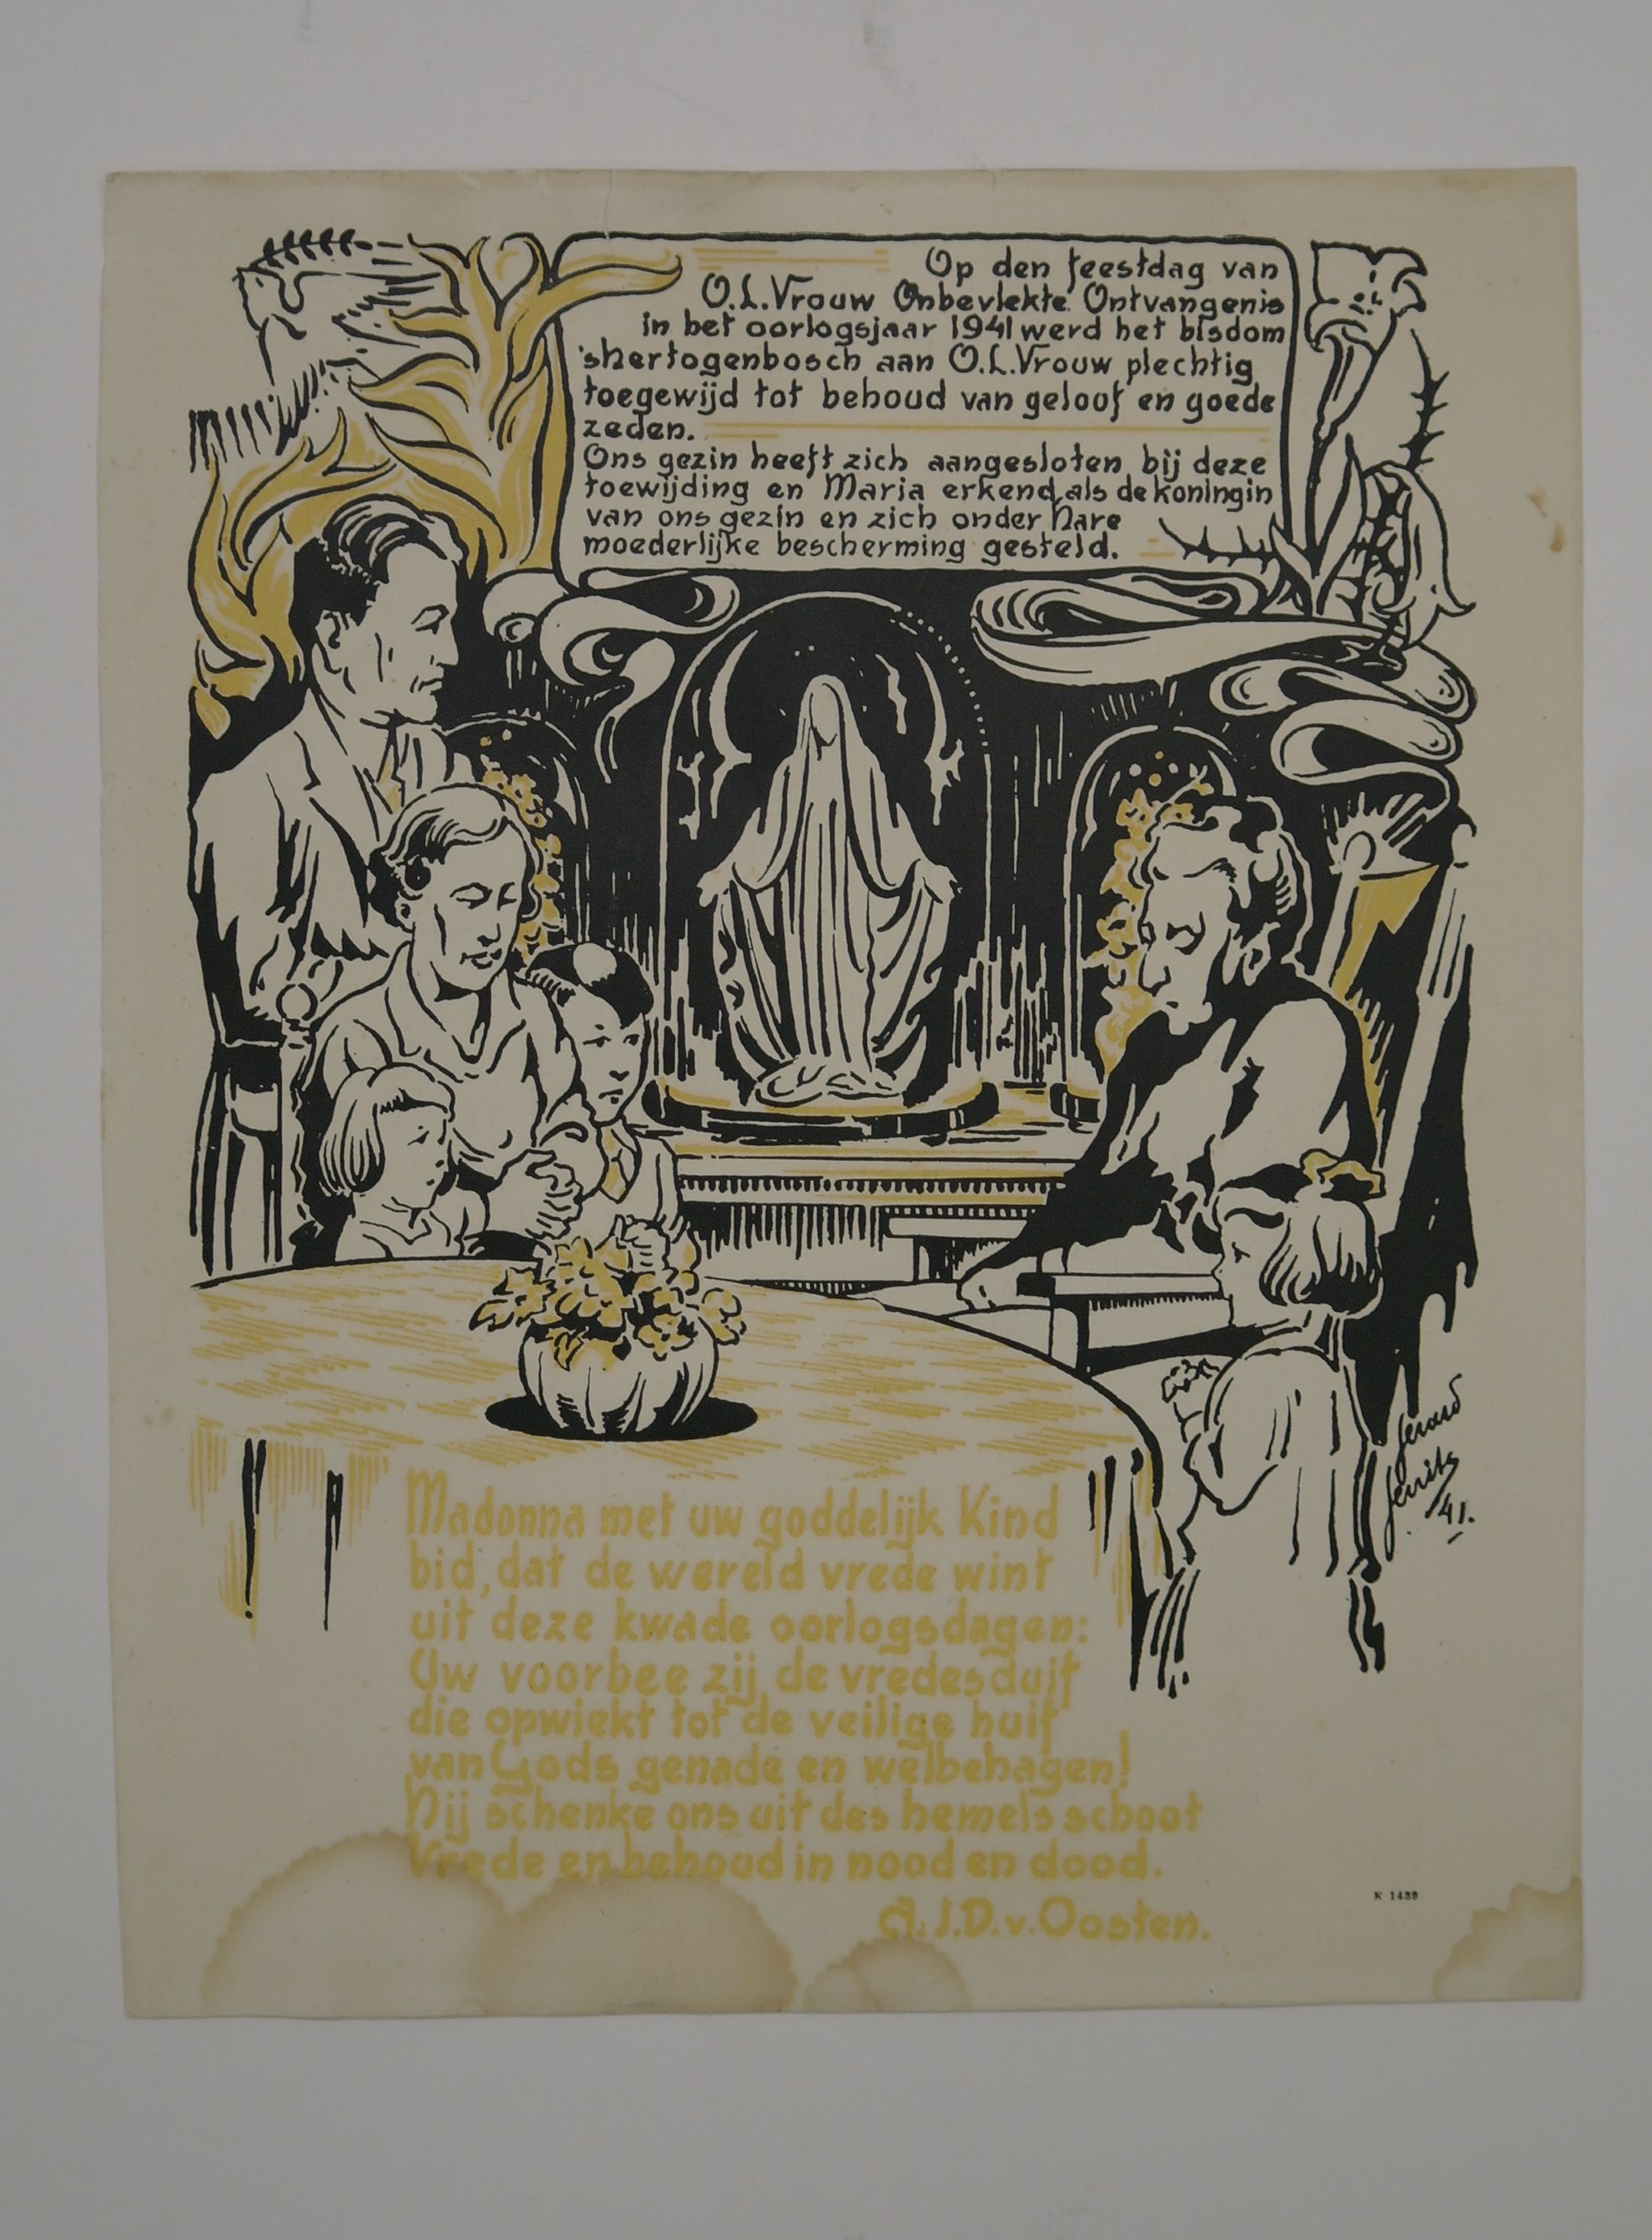 Op den feestdag van
O.L.Vrouw Onbevlekte Ontvangenis
in het oorlogsjaar 1941 werd het bisdom
'shertogenbosch aan O.L.Vrouw plechtig
toegewijd tot behoud van geloof en goede
zeden.
Ons gezin heeft zich aangesloten bij deze
toewijding en Maria erkend als de koningin
van ons gezin en zich onder Hare
moederlijke bescherming gesteld.
Gerard
Gerrits
41.
Madonna met uw goddelijk Kind
bid, dat de wereld vrede wint
uit deze kwade oorlogsdagen:
Uw voorbee zij de vredesduif
die opwiekt tot de veilige huif
van Gods genade en welbehagen!
Hij schenke ons uit des hemels schoot
Vrede en behoud in nood en dood.
A.J.D.v.Oosten.
K 1439